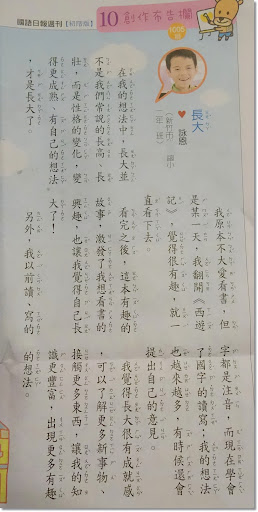 國語日報週刊【初階版】
10 創作布告欄
1005期
長大
♥ 詠恩
（新竹市 國小
一年 班）
在我的想法中，長大並
不是我們常說的長高、長
壯，而是性格的變化，變
得更成熟、有自己的想法，
才是長大了。
我原本不大愛看書，但
是某一天，我翻開《西遊
記》，覺得很有趣，就一
直看下去。
看完之後，這本有趣的
故事，激發了我想看書的
興趣，也讓我覺得自己長
大了！
另外，我以前讀、寫的
字都是注音，而現在學會
了國字的讀寫；我的想法
也越來越多，有時候還會
提出自己的意見。
我覺得長大很有成就感
，可以了解更多新事物、
接觸更多東西，讓我的知
識更豐富，出現更多有趣
的想法。